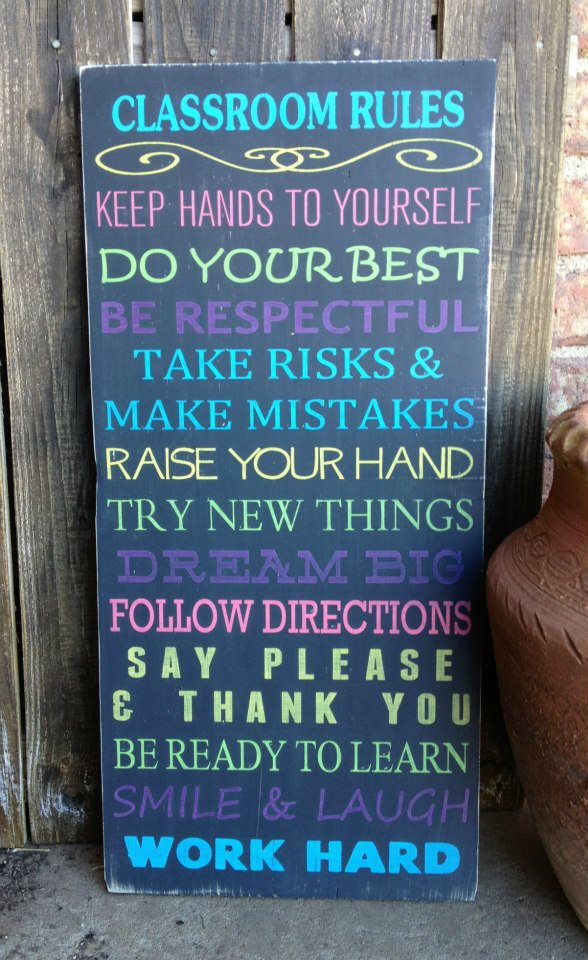 CLASSROOM RULES
KEEP HANDS TO YOURSELF
DO YOUR BEST
BE RESPECTFUL
TAKE RISKS &
MAKE MISTAKES
RAISE YOUR HAND
TRY NEW THINGS
DREAM BIG
FOLLOW DIRECTIONS
SAY PLEASE
& THANK YOU
BE READY TO LEARN
SMILE & LAUGH
WORK HARD